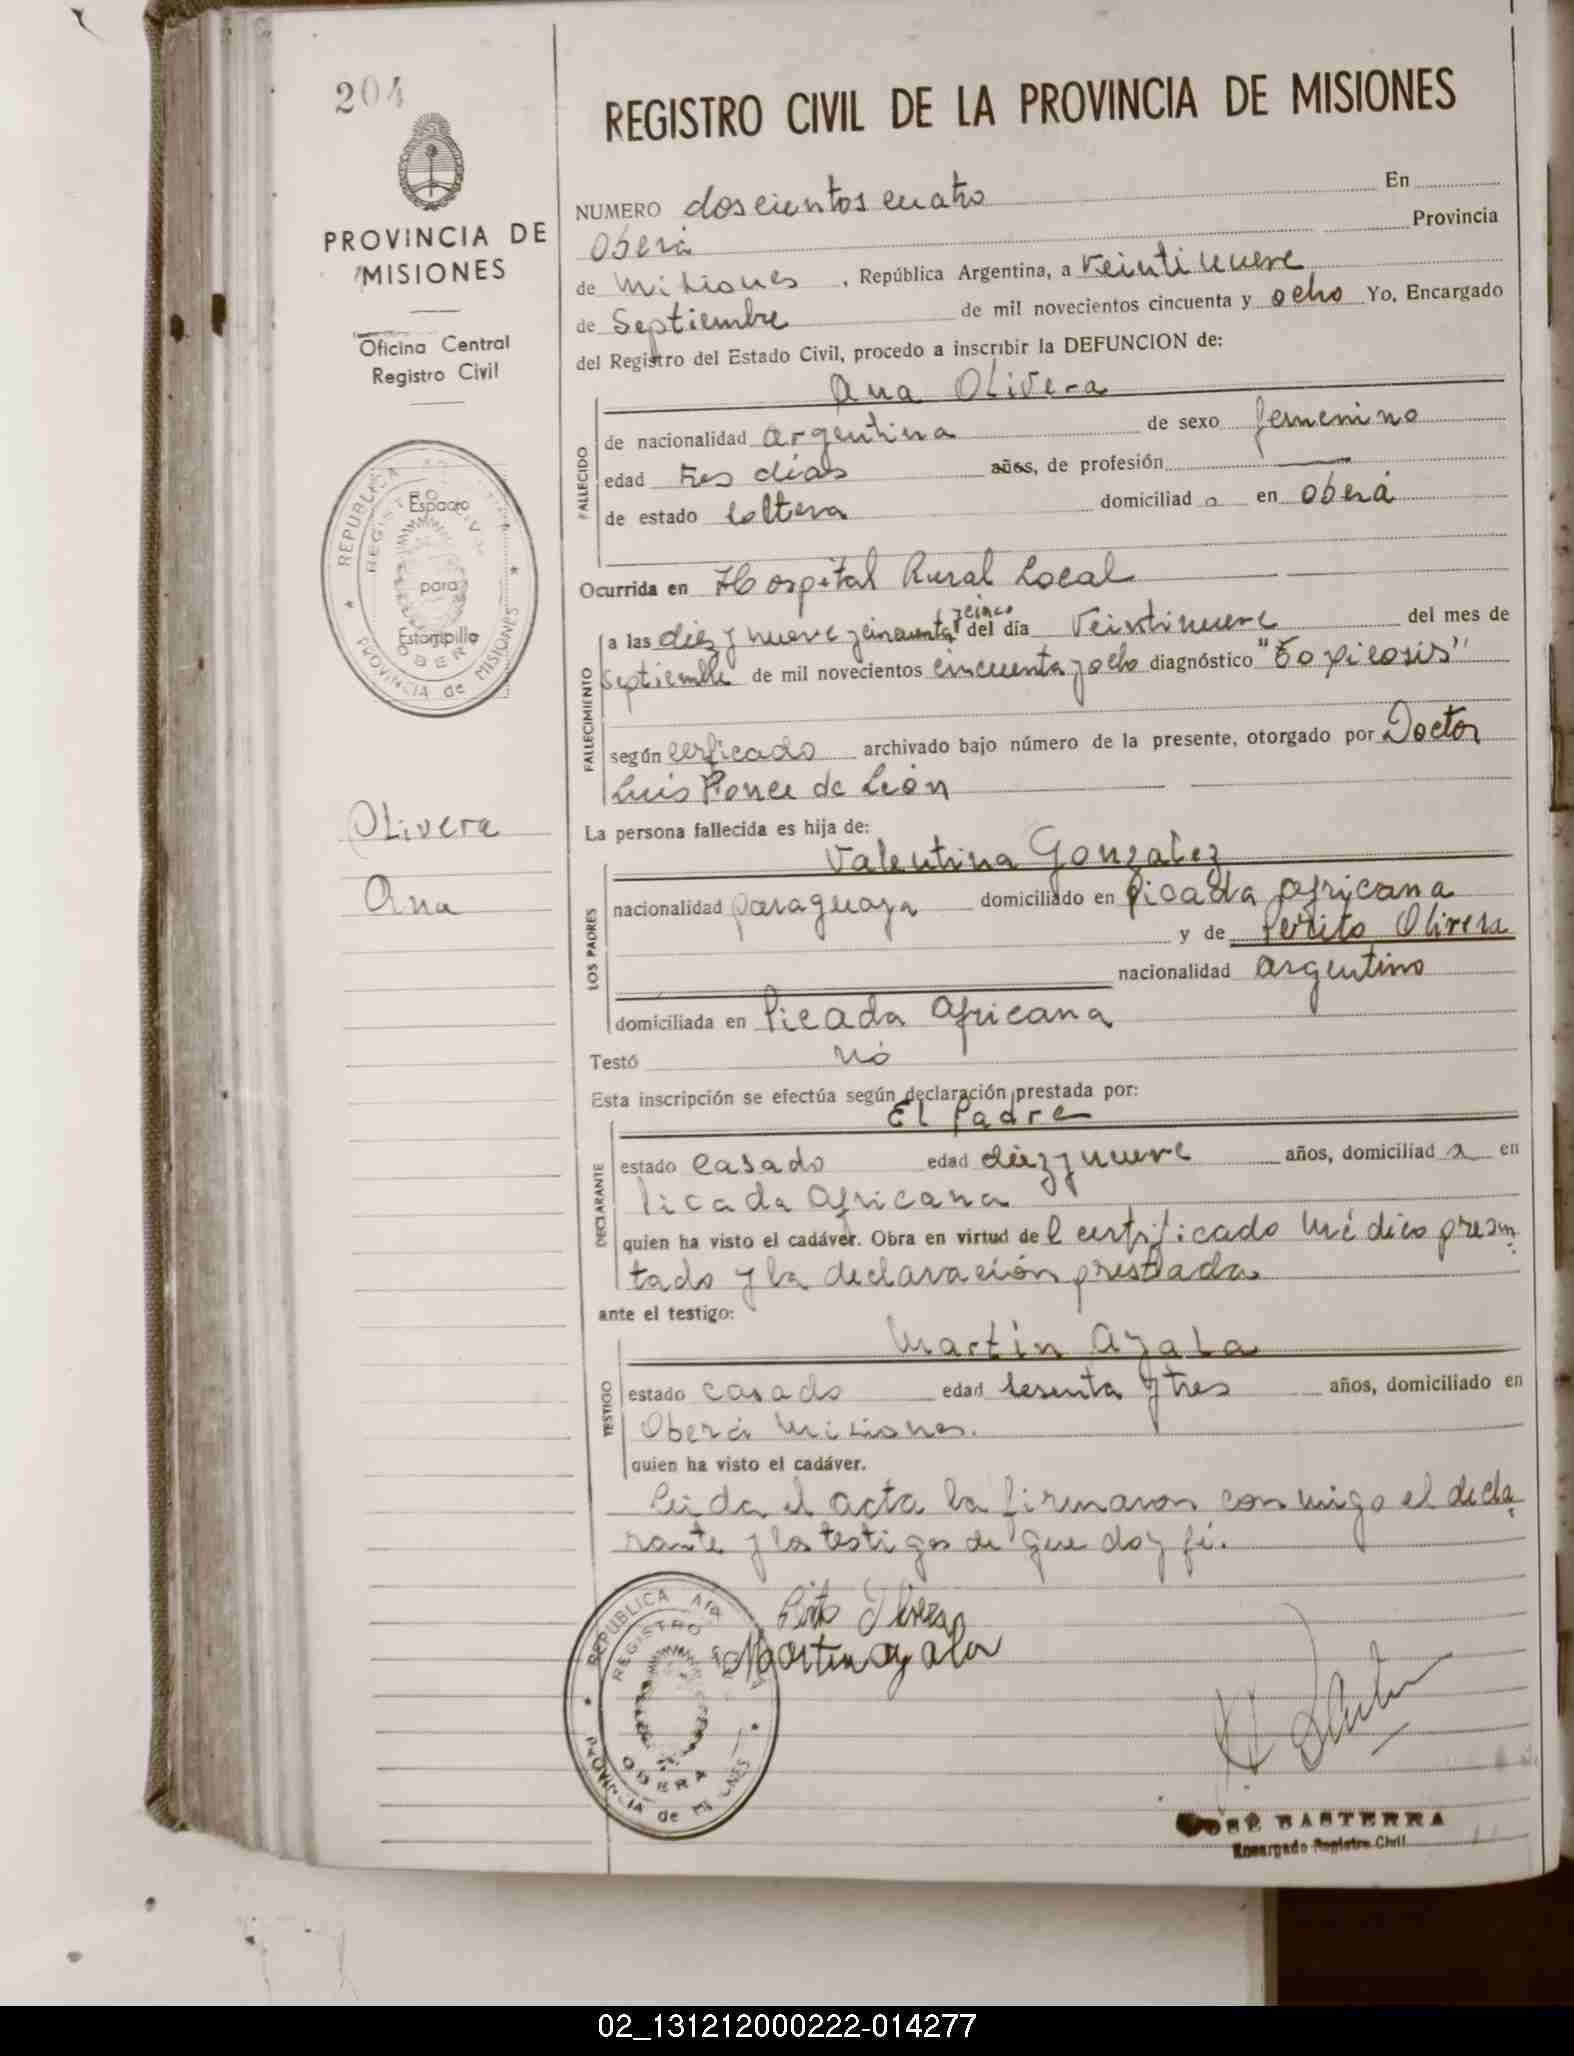 204
PROVINCIA DE
MISIONES
Oficina Central
Registro Civil
REPUBLICA
REGISTRO CIVIL
Espacio
para
Estampilla
OBERA
PROVINCIA de MISIONES
Olivera
Ana
REGISTRO CIVIL DE LA PROVINCIA DE MISIONES
NUMERO doscientos cuatro En
Oberá Provincia
de Misiones, República Argentina, a veintinueve
de Septiembre de mil novecientos cincuenta y ocho Yo, Encargado
del Registro del Estado Civil, procedo a inscribir la DEFUNCION de:
Ana Olivera
FALLECIDO
de nacionalidad argentina de sexo femenino
edad tres días años, de profesión —
de estado soltera domiciliad a en Oberá
Ocurrida en Hospital Rural Local
FALLECIMIENTO
a las diez y nueve y cincuenta y cinco del día veintinueve del mes de
septiembre de mil novecientos cincuenta y ocho diagnóstico
según cerficado archivado bajo número de la presente, otorgado por Doctor
Luis Ponce de León
La persona fallecida es hija de:
Valentina Gonzalez
LOS PADRES
nacionalidad paraguaya domiciliado en Picada africana
y de Olivera
nacionalidad argentino
domiciliada en Picada africana
Testó nó
Esta inscripción se efectúa según declaración prestada por:
El Padre
DECLARANTE
estado casado edad diez y nueve años, domiciliad a en
Picada Africana
quien ha visto el cadáver. Obra en virtud del certificado médico presen
tado y la declaración prestada
ante el testigo:
Martin Ayala
TESTIGO
estado casado edad sesenta y tres años, domiciliado en
Oberá Misiones.
quien ha visto el cadáver.
Leida el acta la firmaron conmigo el decla
rante y los testigos de que doy fé.
Martin ayala
REPUBLICA
REGISTRO
OBERA
PROVINCIA de MISIONES
JOSÉ BASTERRA
Encargado Registro Civil
02_131212000222-014277